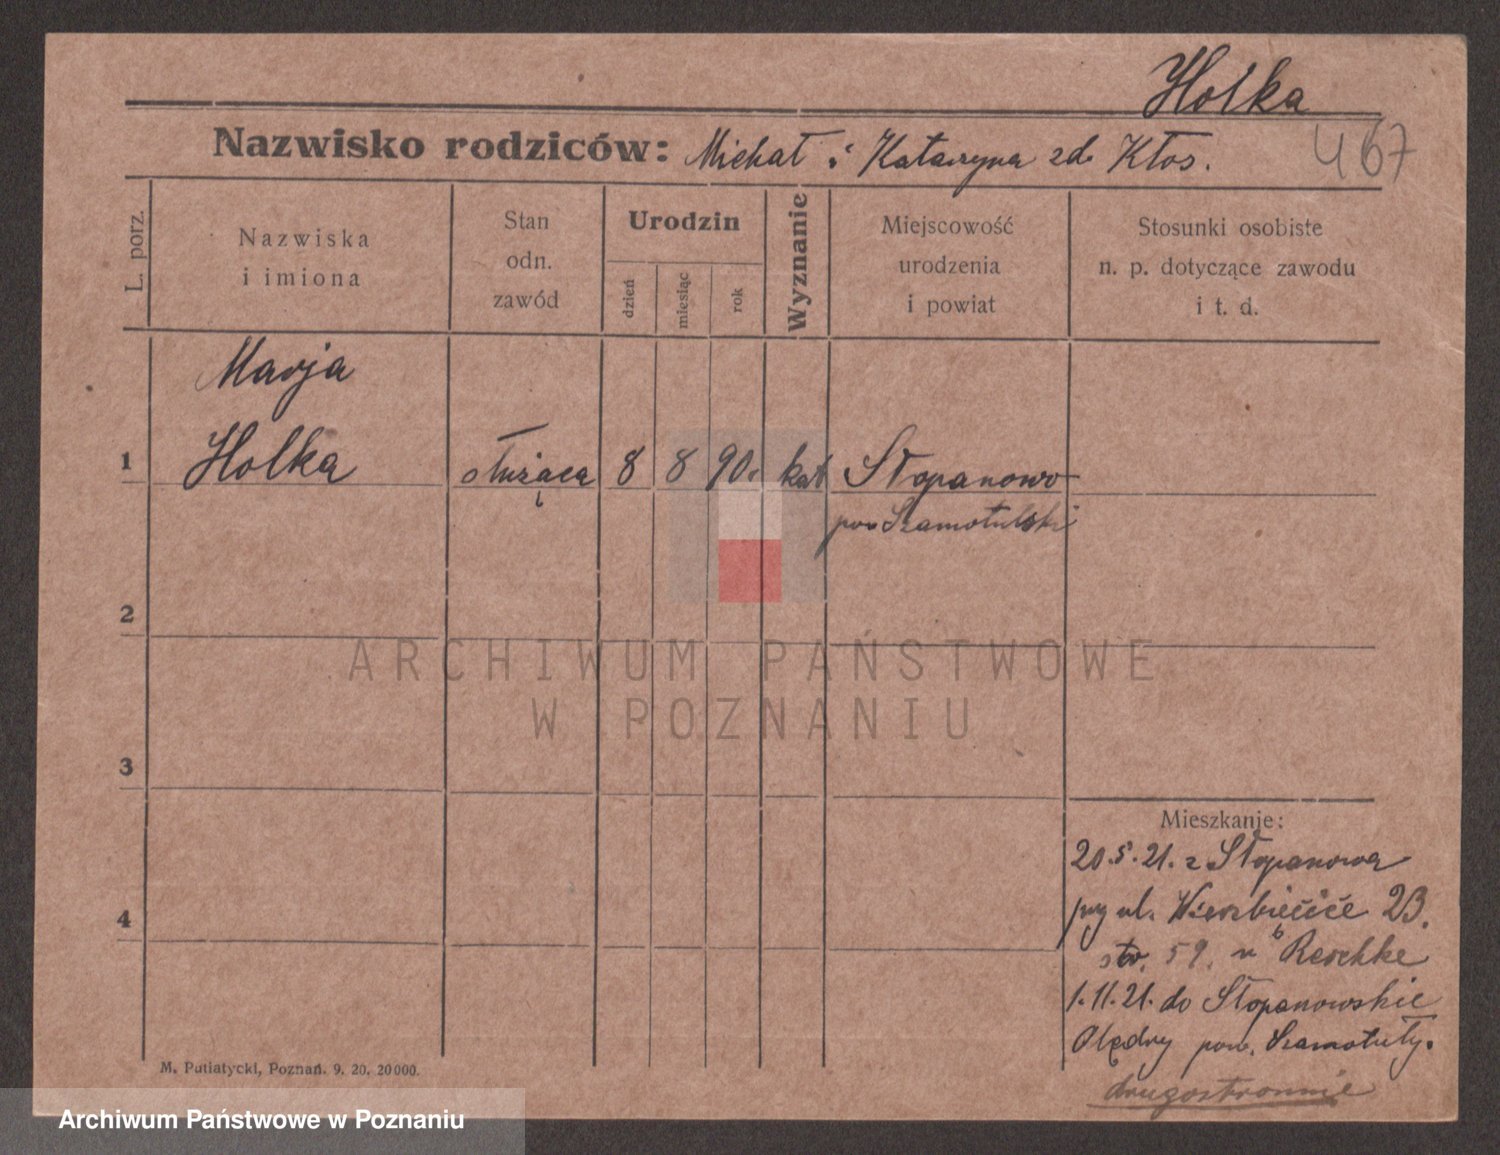 Holka
467
Nazwisko rodziców: Michał i Katarzyna zd. Kłos.
L. porz.
Nazwiska
i imiona
Stan
odn.
zawód
Urodzin
dzień
miesiąc
rok
Wyznanie
Miejscowość
urodzenia
i powiat
Stosunki osobiste
n. p. dotyczące zawodu
i t. d.
Marja
1 Holka służąca 8 8 90. kat Stopanowo
pow Szamotulski
2
ARCHIWUM PAŃSTWOWE
W POZNANIU
3
4
Mieszkanie:
20.5.21. z Stopanowa
przy ul. Wierzbięcice 23.
str. 59. u Reschke
1.11.21. do Stopanowskie
Olędry pow. Szamotuły.
drugostronnie
M. Putiatycki, Poznań. 9. 20. 20000.
Archiwum Państwowe w Poznaniu